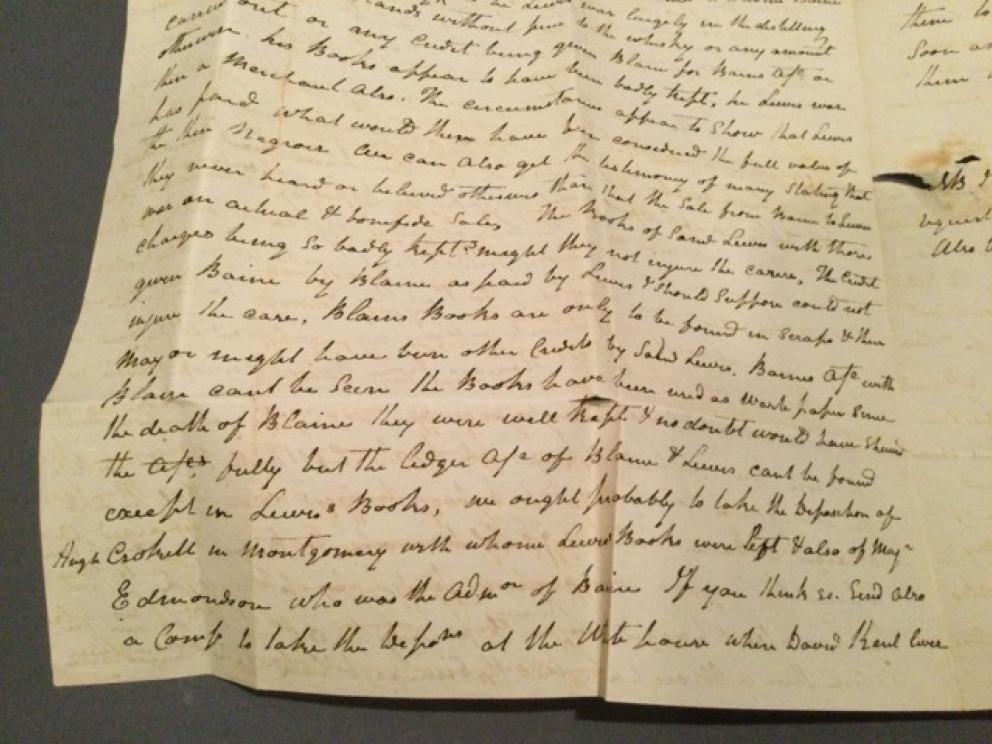 he Lewis was largely in the distilling
cannot out or hands without price to the whisky or any amount
otherwise or any Credit being given Blain for Bains Afc or
his Books appear to have been badly kept, he Lewis was
then a Merchant also. The circumstances appear to Show that Lewis
has paid what would then have been considered the full value of
the then Negroes We can also get the testimony of many Stating that
they never heard or believed otherwise than that the Sale from Baine to Lewis
was an actual & bonifide Sale, The Books of Said Lewis with those
charges being so badly kept might they not injure the cause, The Credit
given Baine by Blaine as paid by Lewis I Should Suppose could not
injure the case, Blains Books are only to be found in scraps & there
may or might have been other Credits by Said Lewis. Bains Afc with
Blain cant be Seen the Books have been used as waste paper Since
the death of Blaine they were well kept & no doubt would have Shewn
the Afcs fully but the Ledger Afc of Blaine & Lewis cant be found
except in Lewis's Books, we ought probably to take the Deposition of
Hugh Crokett in Montgomery with whome Lewis Books were left & also of Majr
Edmondson who was the Admor of Baine If you think so. Send also
a Comn to take the Depons at the White house where David Kent lives
them to
Soon as
them
NB I
request
Also